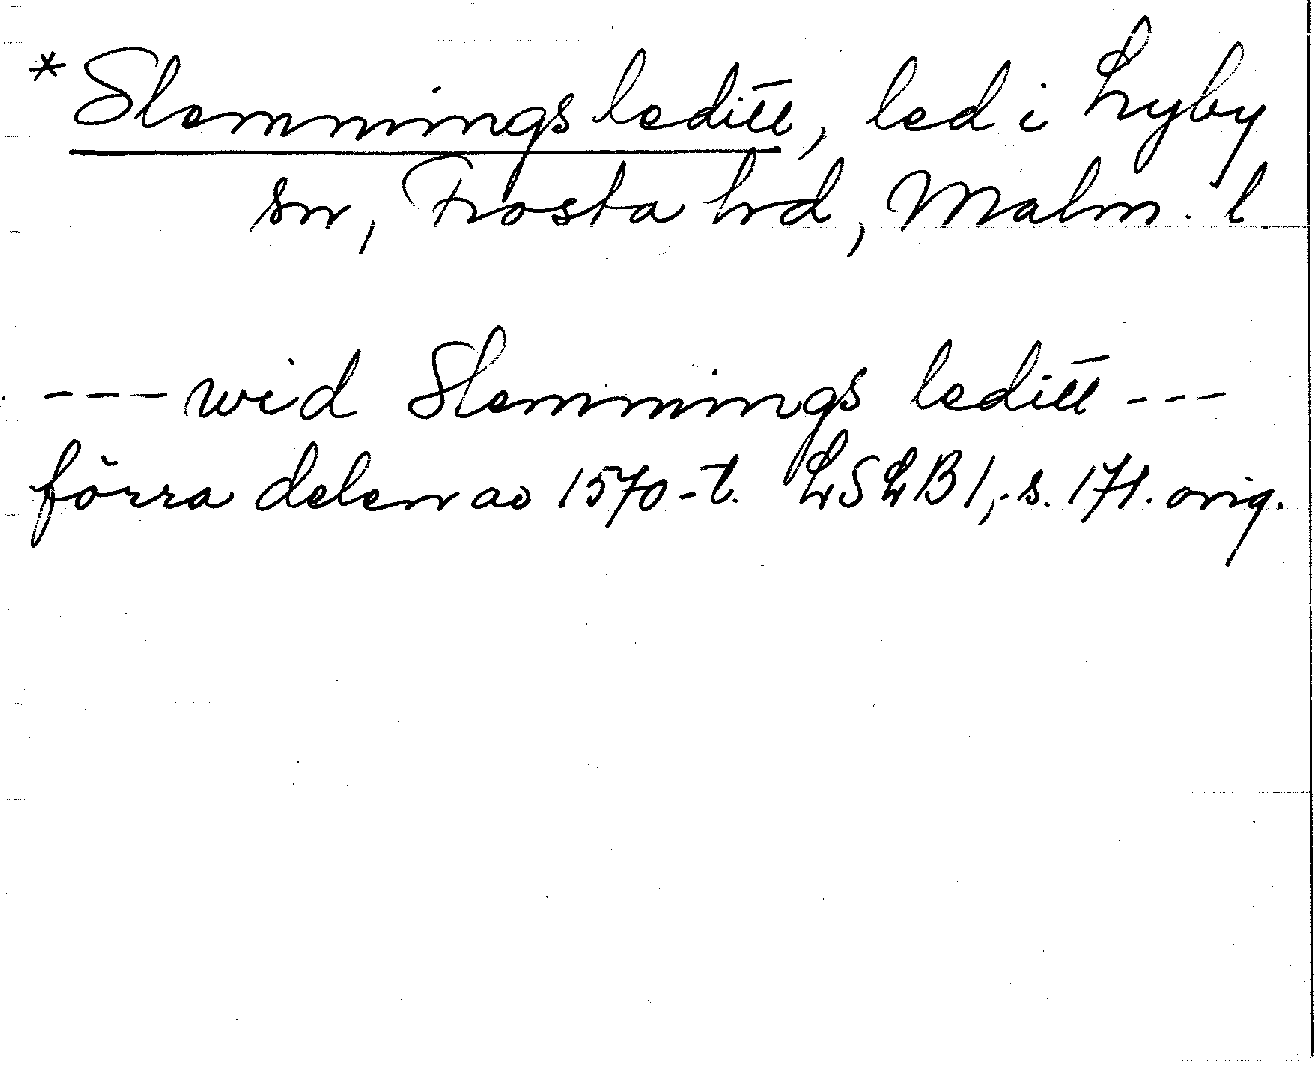 *Slemmings leditt, led i Lyby
sn, Frosta hd, Malm. l
---wid Slemmings leditt---
förra delen av 1570-t. LSLB1, s. 171. orig.